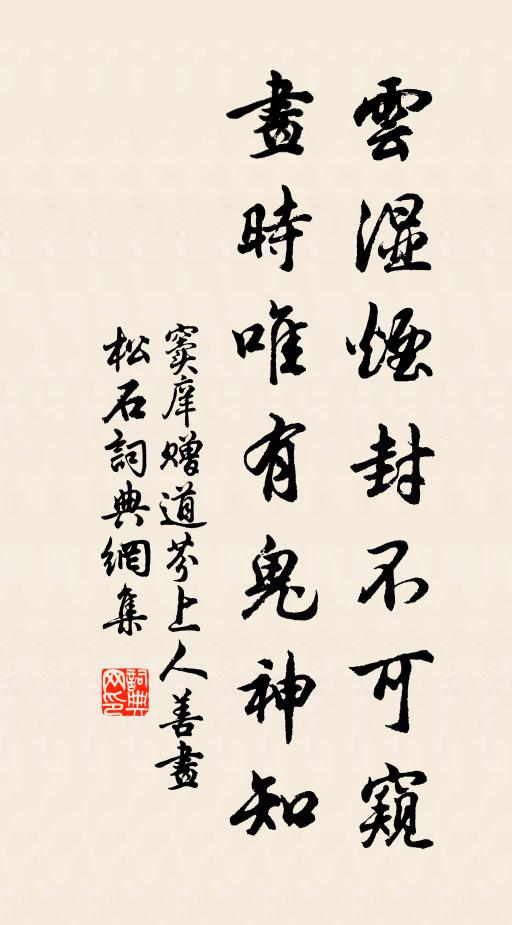 雲濕煙封不可窺
畫時唯有鬼神知
竇庠贈道芬上人善畫
松石詞典網集
詞典網印